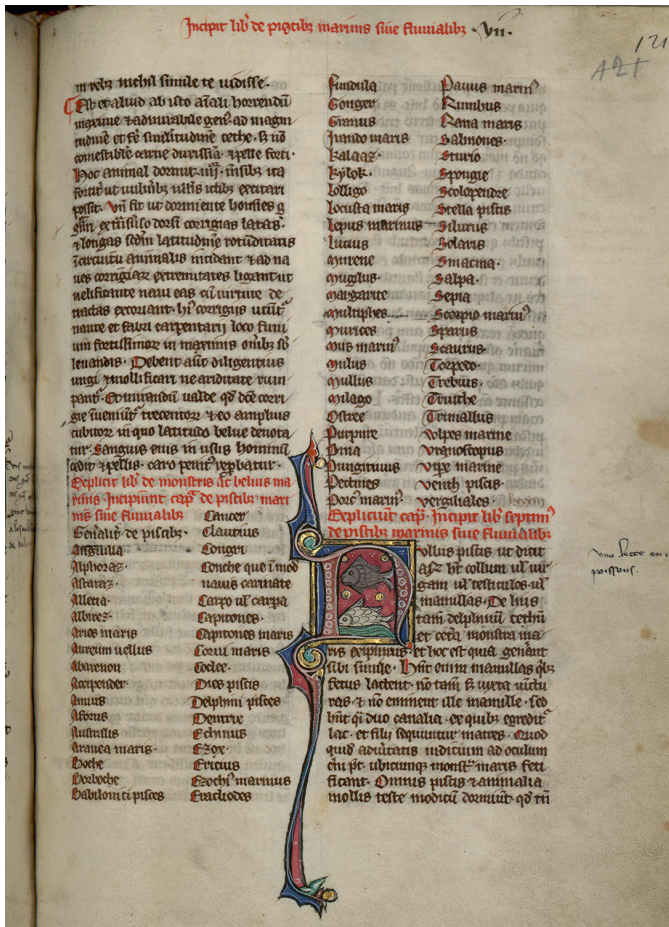 Incipit lib' de piscibz marinis siue fluuialibz · VII ·
121
A21
in rebz nichil simile te vidisse ·
Est et aliud ab isto aīali horrendū
maxime ⁊ admirabile gen' ad magni
tudinē et fe similitudinē cethe · ⁊ nō
comestibile carne durissia ⁊ pelle forti ·
Hoc animal dormit · īnsibz ita
fortit' ut ictibz excitari
possit · Vn fit ut dormiente homīes
dorsi corrigias latas ·
⁊ longas scdm latitudinē rotūditatis
ī circuitu animalis incidant ⁊ ad na
ues corrigiaz extremitates ligant ut
velificante naui eas cū virtute de
tractas excoriant · hiis corrigiis utūt'
naute et fabri carpentarii loco funi
um fortissimor in maximis onibz sb
leuandis · Debent aūt diligentius
ungi ⁊ mollificari ne ariditate rum
pant' · Et mirandū valde qd dcē corri
gie īueniūt' trecentor ⁊ eo amplius
cubitor in quo latitudo belue denota
tur · Sanguis eius in usus hominū
cedit ⁊ pellis · caro penit' reprobatur ·
Explicit lib' de monstris ac beluis ma
rinis · Incipiunt capa de piscibz mari
nis siue fluuialibz
Gen'alit' de piscibz ·
Anguilla
Alphoraz ·
Astaraz ·
Allecia ·
Albirez ·
Aries maris
Aureum vellus
Abarenon
Accipender ·
Amius
Aforus
Australis
Aranea maris ·
Boche
Borboche
Babilonici pisces
Cancer
Clautius
Congri
Conche que ī mod
nauis carinate
Carpo ul carpa
Capitones ·
Capitones maris
Corui maris
Coclee ·
Dies piscis
Delphini pisces
Dentrix
Echinus
Ezox ·
Ericius
Ezochi' marinus
Eracliodes
Fundula
Gonger
Granus
Irundo maris
Kalaaz ·
Kylok ·
Lolligo
Locusta maris
Lepus marinus
Lucius
Murene
Mugilus ·
Margarite
Multiphes
Murices
Mus marin'
Mulus
Mullus
Milago
Ostree
Purpure
Pina
Pungitiuus
Pectines
Porc' marin' ·
Pauus marin'
Rumbus
Rana maris
Salmones ·
Sturio
Spongie
Scolopendre
Stella piscis
Silurus
Solaris
Smacina ·
Salpa ·
Sepia
Scorpio marin'
Sparus
Scaurus ·
Torpedo ·
Trebius ·
Truithe
Trimallus
Vulpes marine
Vranoscopus
Vipe marine
Venth piscis
Vergiliales ·
Expliciut cap' · Incipit lib' septim'
de piscibz marinis siue fluuialibz
Nullus piscis ut dicit
ar' h't collum ul uir
gam ul testiculos · ul
mamillas · De hiis
tam delphinū cethū
et cet'a monstra ma
ris excipimus · et hoc est quia gen'ant
sibi simile · Hūt enim mamillas qbz
fetus lactent · nō tam s; iuxta iūctu
ras · ⁊ nō eminent ille mamille · sed
hūt qi duo canalia · ex quibz egredit'
lac · et filii sequuntur matres · Quod
quid' aduītatis iudicium ad oculum
ubicumque monst' maris feti
ficant · Omnis piscis ⁊ animalia
mollis teste modicū dormiūt · qd tn